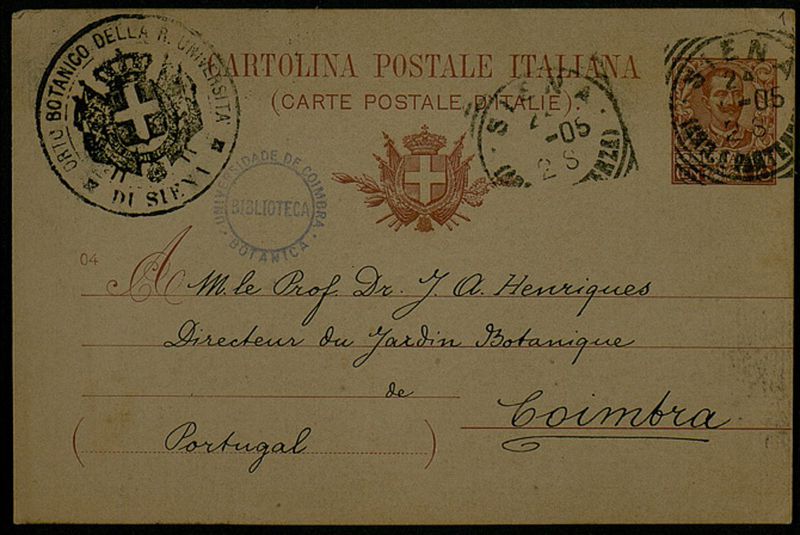 ORTO BOTANICO DELLA R. UNIVERSITÀ
DI SIENA
CARTOLINA POSTALE ITALIANA
(CARTE POSTALE D'ITALIE)
SIENA
-05
2 S
SIENA
-05
2 S
UNIVERSIDADE DE COIMBRA
BIBLIOTECA
BOTANICA
04
A M. le Prof. Dr. J. A. Henriques
Directeur du Jardin Botanique
de
Coimbra
(Portugal)